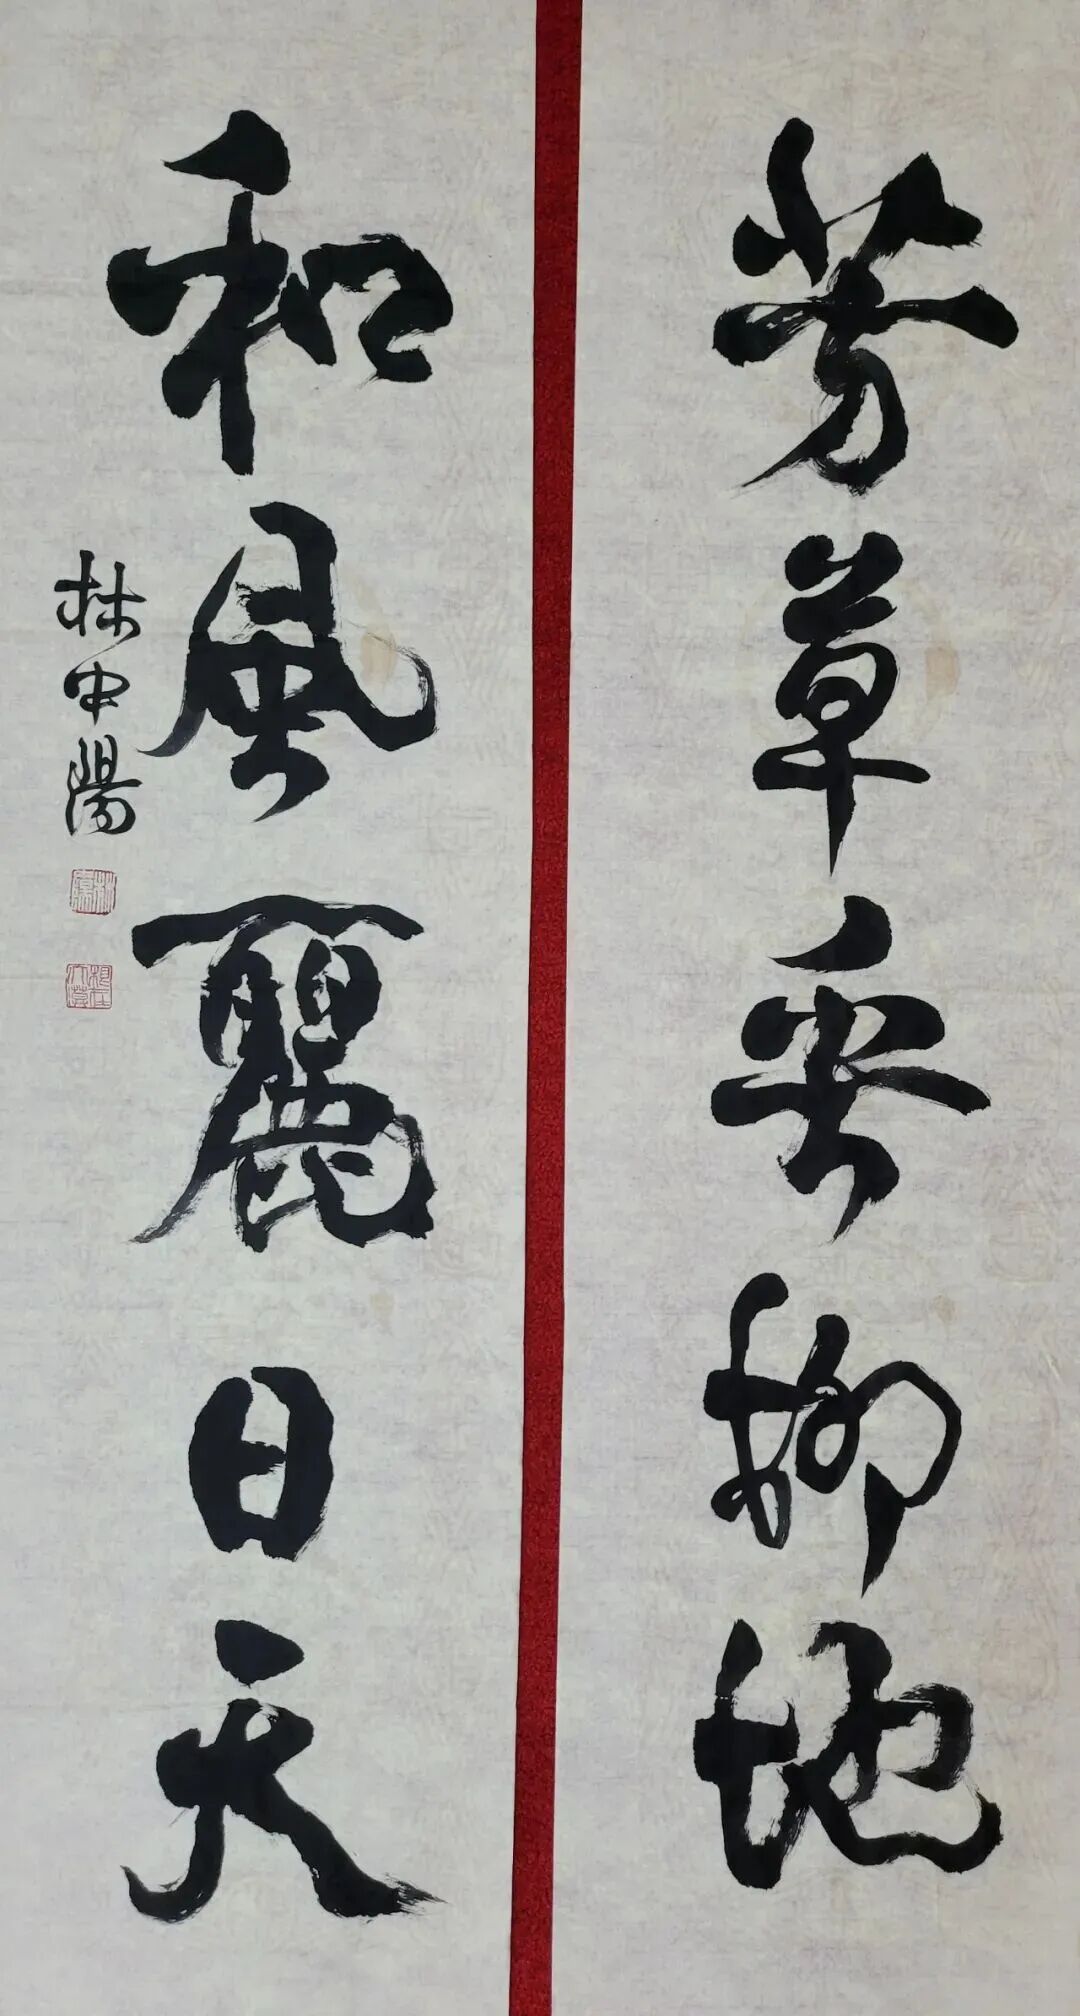 芳草垂柳地
和風麗日天
林中陽